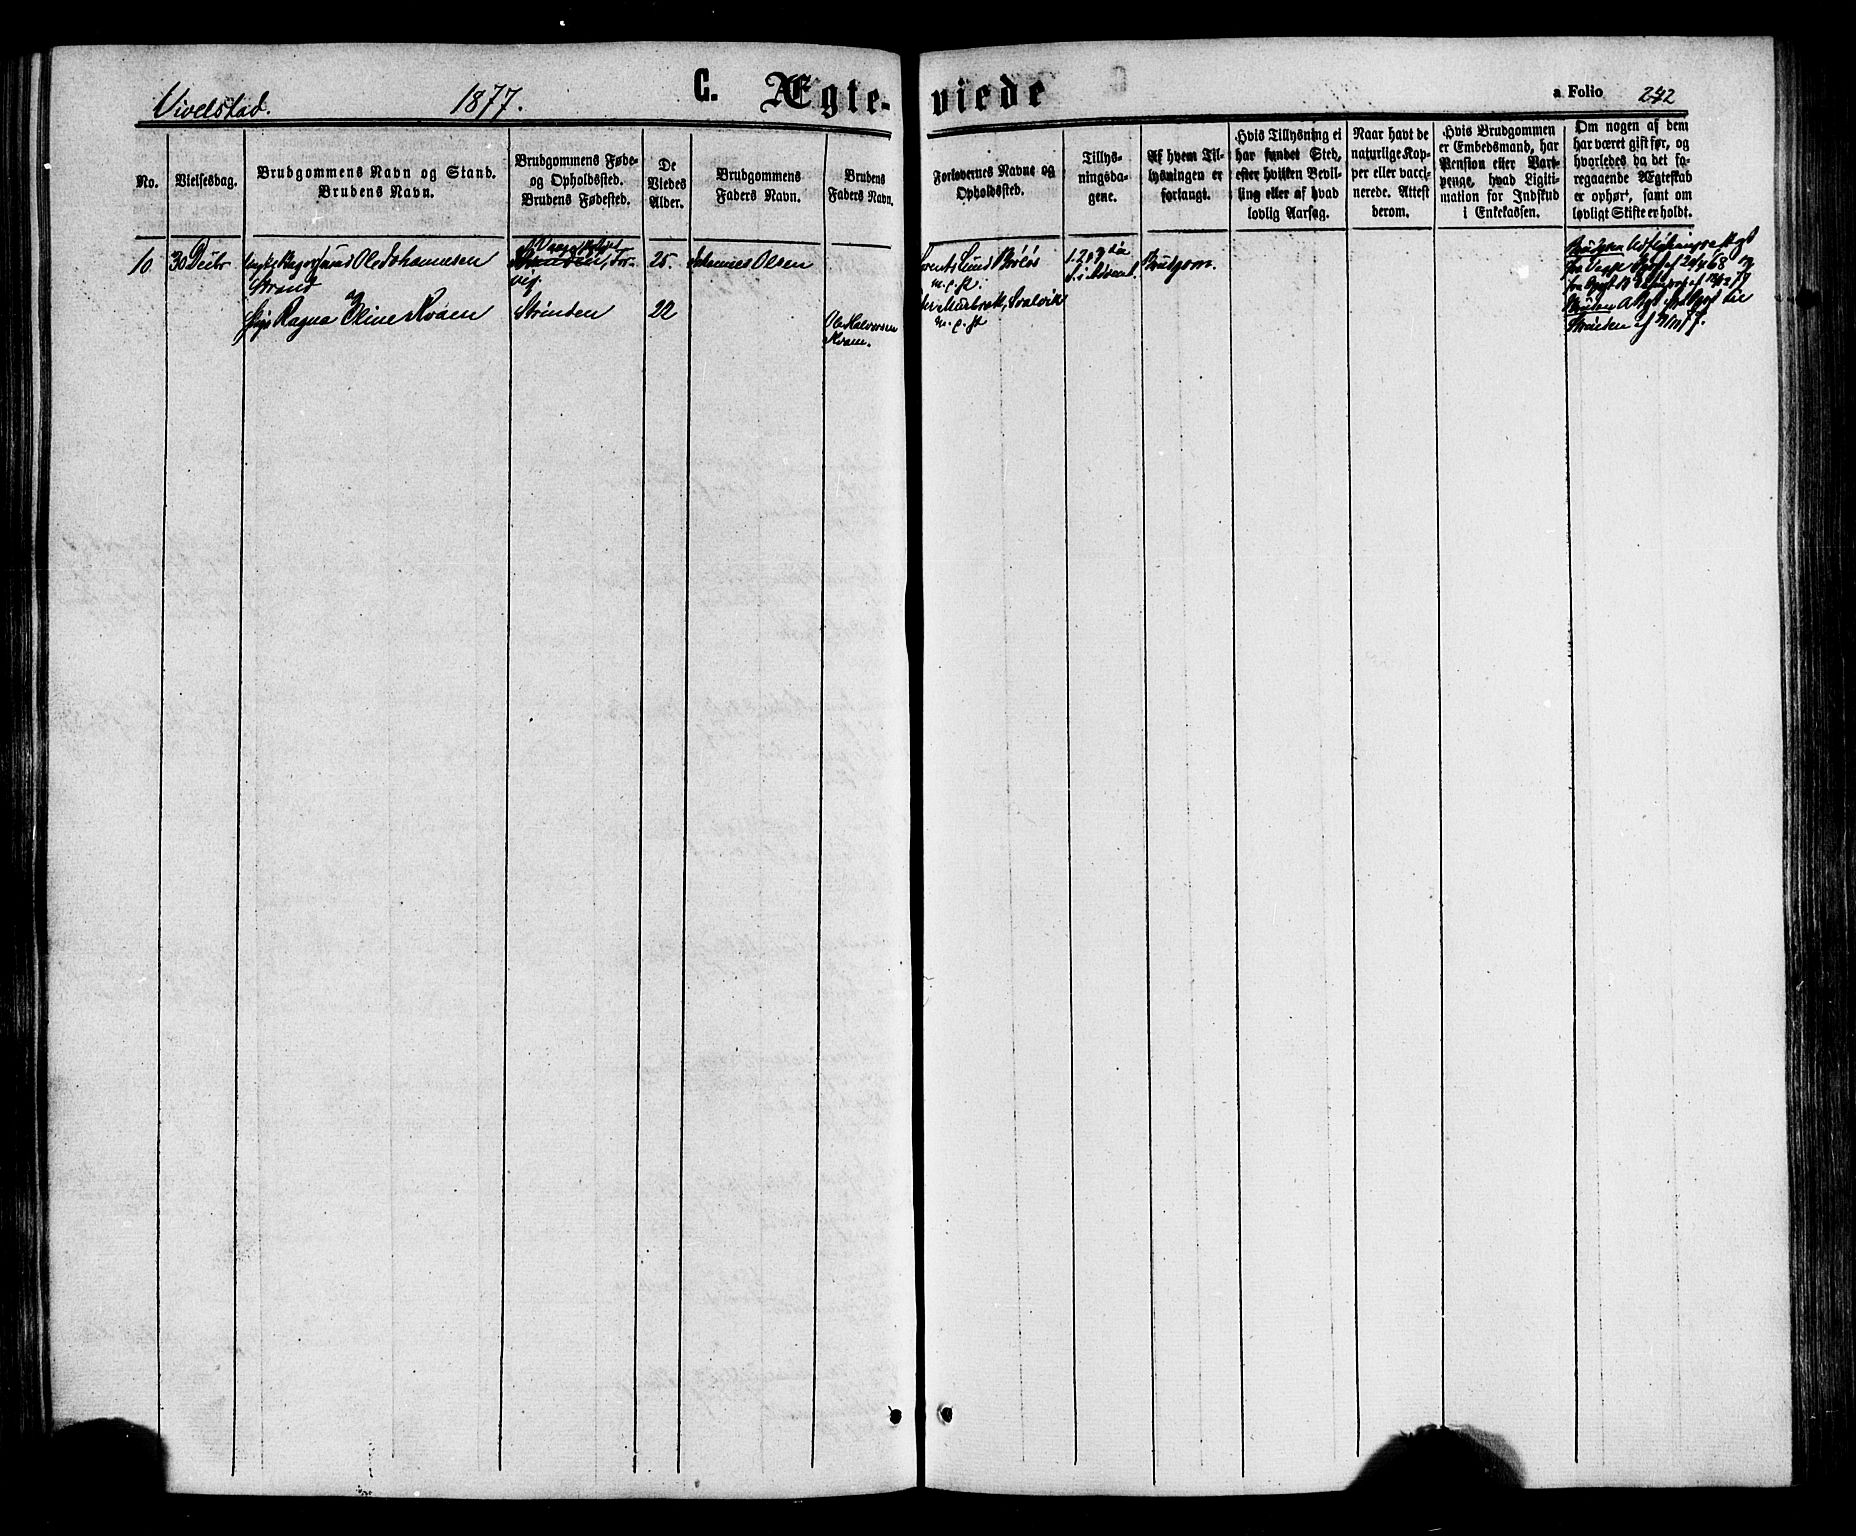 Vivelstad. 1877. C. Ægte-viede a. Folio 242
No.
Vielsesdag.
Brudgommens Navn og Stand.
Brudens Navn.
Brudgommens Føde-
og Opholdssted.
Brudens Fødested.
De
Viedes
Alder.
Brudgommens
Faders Navn.
Brudens
Faders Navn.
Forlovernes Navne og
Opholdssted.
Tillys-
ningsda-
gene.
Af hvem Til-
lysningen er
forlangt.
Hvis Tillysning ei
har fundet Sted,
efter hvilken Bevil-
ling eller af hvad
lovlig Aarsag.
Naar havt de
naturlige Kop-
per eller vacci-
nerede. Attest
derom.
Hvis Brudgommen
er Embedsmand, har
Pension eller Vart-
penge, hvad Ligiti-
mation for Indskud
i Enkekassen.
Om nogen af dem
har været gift før, og
hvorledes da det fo-
regaaende Ægteskab
er ophørt, samt om
lovligt Skifte er holdt.
10.
30 Decbr
Ole Johannesen
Strand
og
Pige Ragna Oline Kvaen
Strinden
25.
22
Johannes Olsen
Ole Halvorsen
Kvam.
Lund
m. p. P.
m. p. P.
1. 2 og
S. i Advent.
Brudgom.